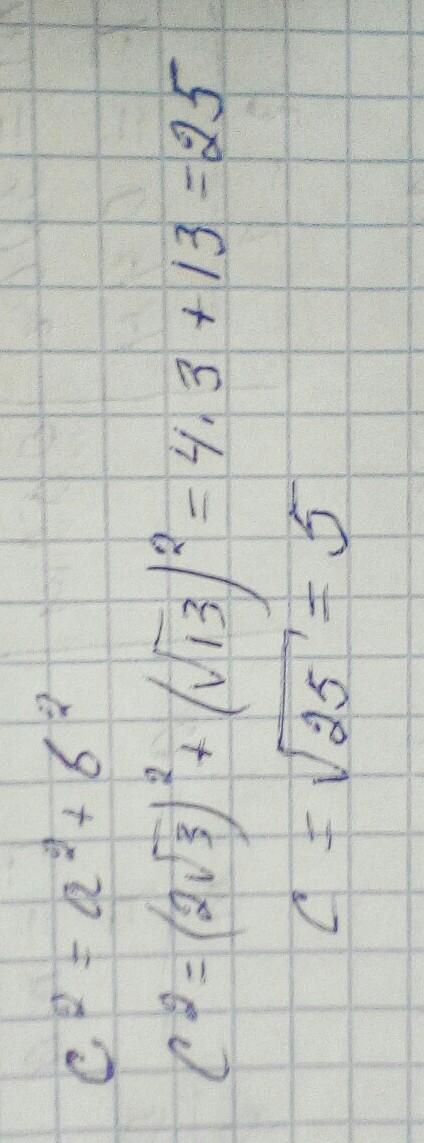 c² = a² + b²
c² = (2√3)² + (√13)² = 4 · 3 + 13 = 25
c = √25 = 5